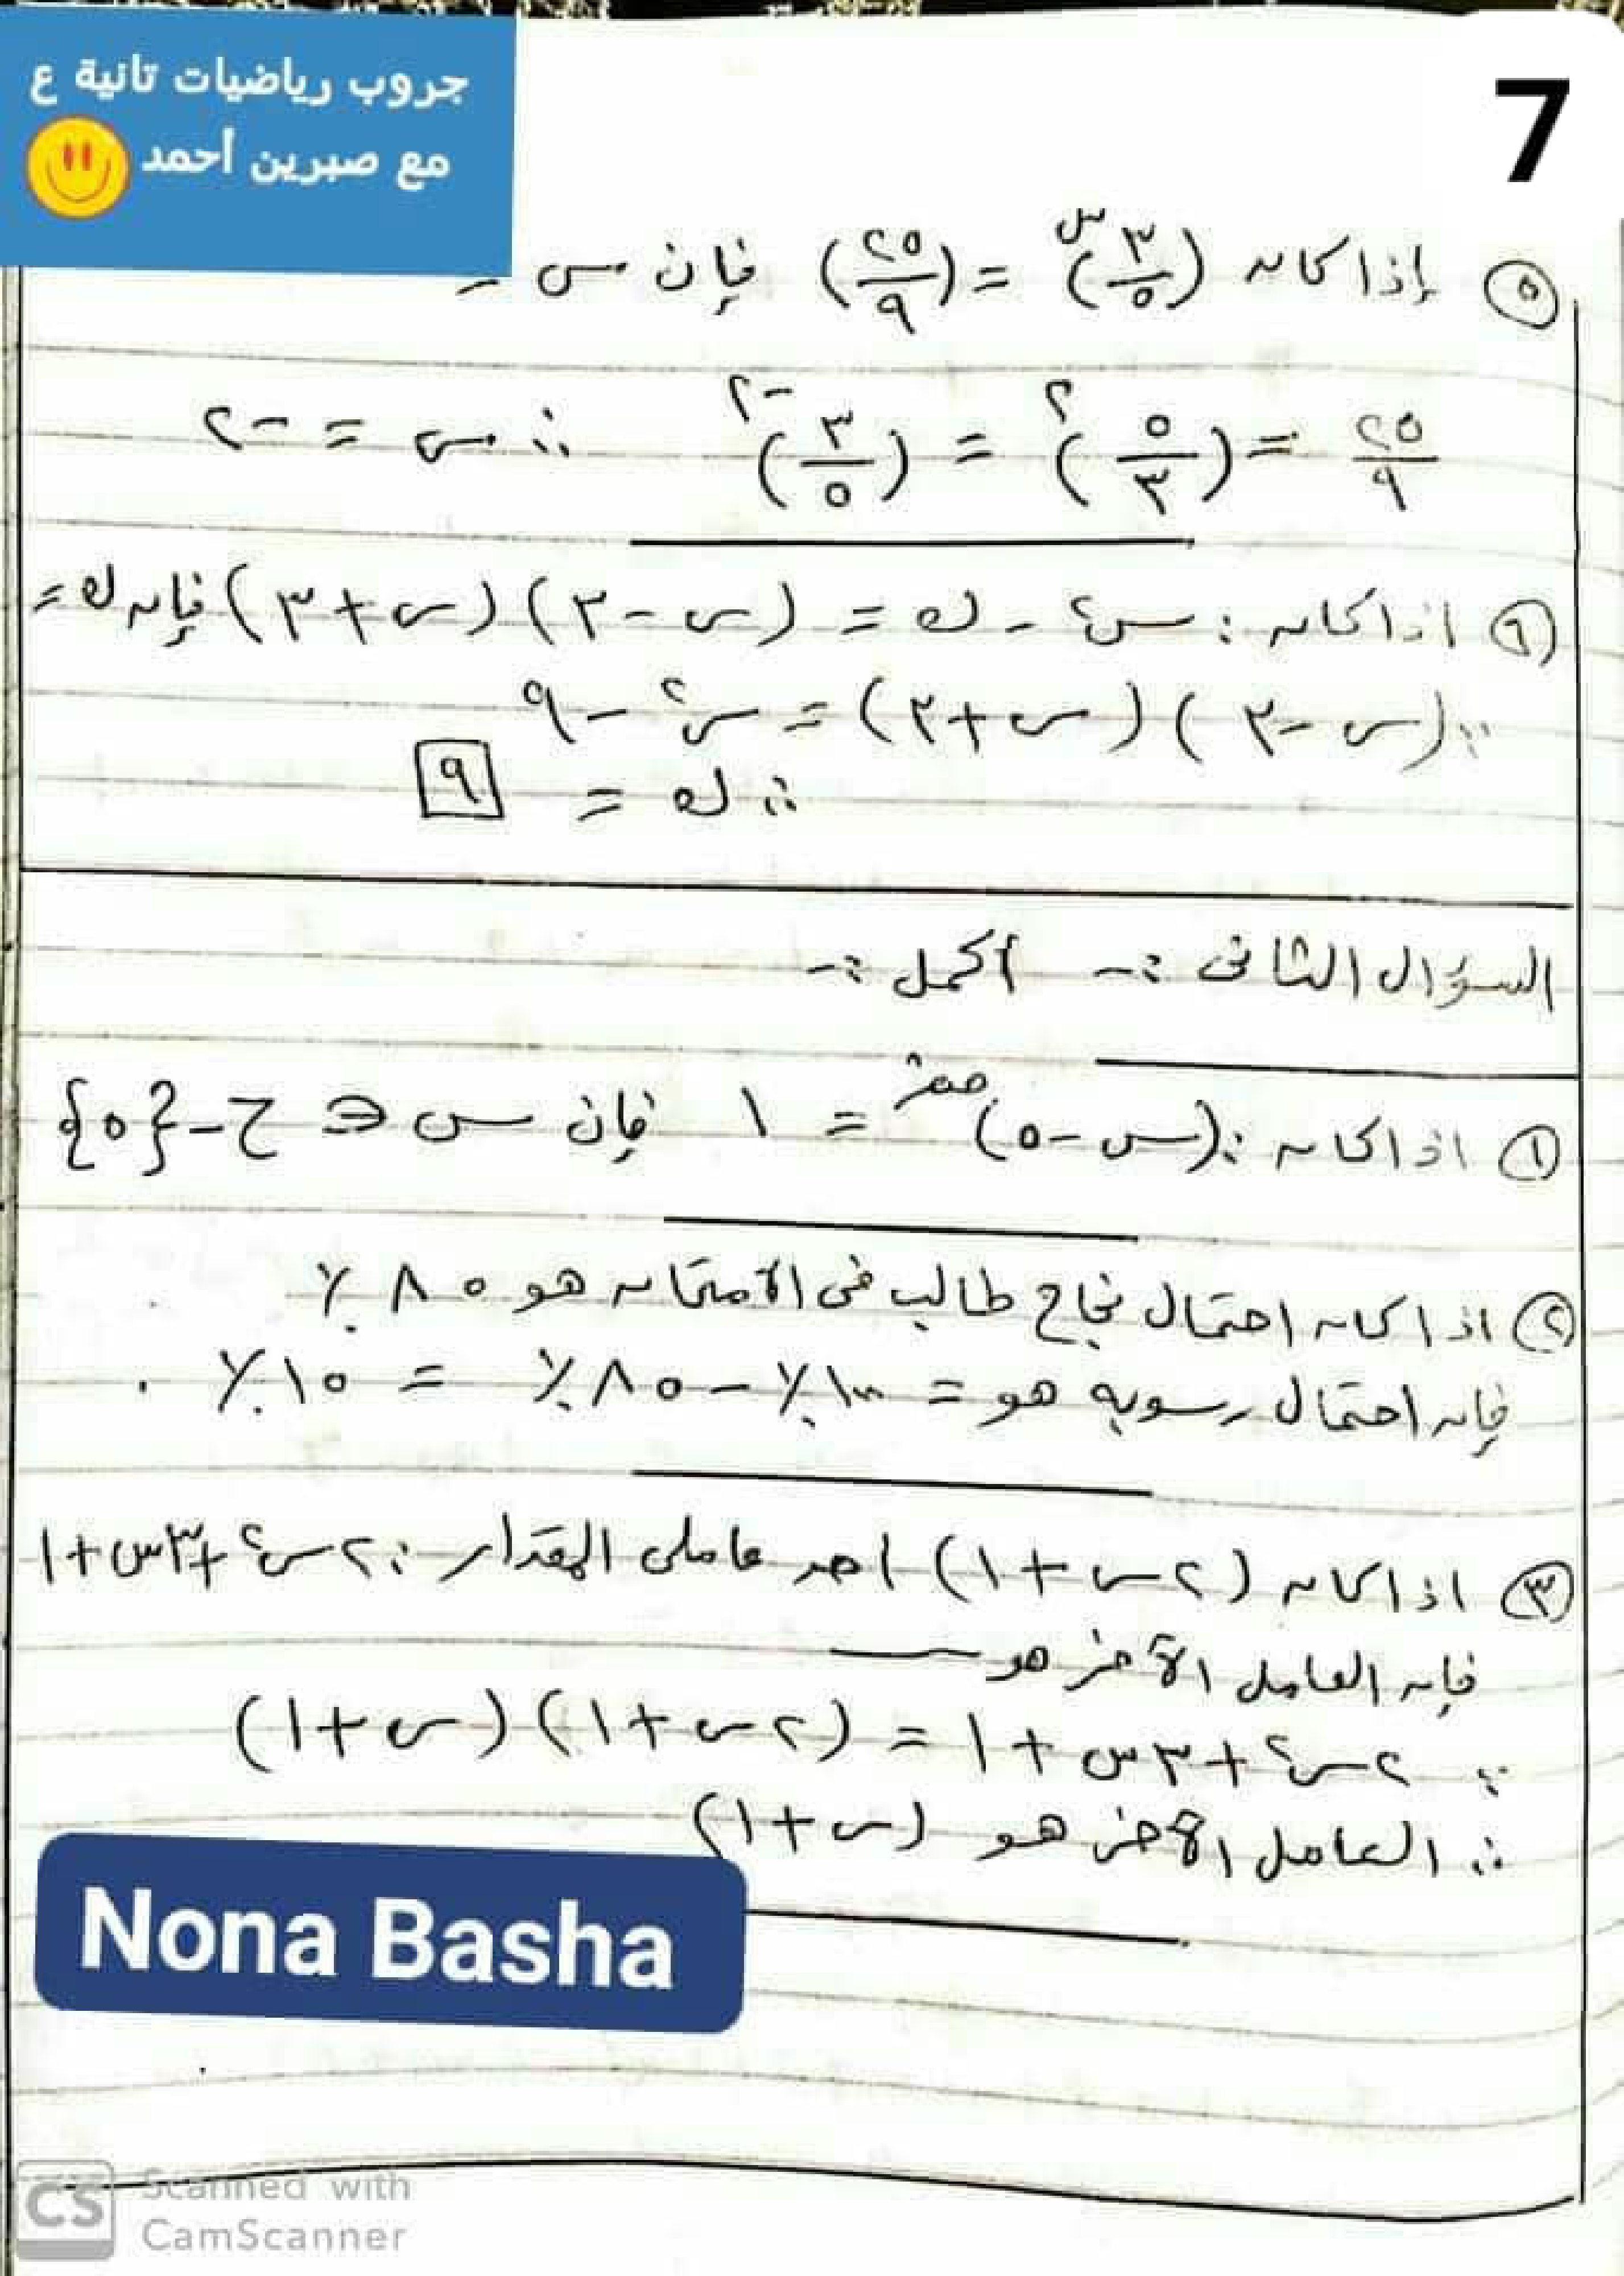 جروب رياضيات تانية ع
مع صبرين أحمد
7
٥ إذا كان (٣/٥)^س = (٢٥/٩) فإن س =
٢٥/٩ = (٥/٣)^٢ = (٣/٥)^-٢ ∴ س = -٢
٦ اذا كان : س^٢ - ك = (س - ٣) (س + ٣) فإن ك =
∵ (س - ٣) (س + ٣) = س^٢ - ٩
∴ ك = ٩
السؤال الثانى :- أكمل :-
١ اذا كان : (س - ٥)^صفر = ١ فإن س ∈ ح - {٥}
٢ اذا كان احتمال نجاح طالب فى الامتحان هو ٨٥ ٪
فإن احتمال رسوبه هو = ١٠٠٪ - ٨٥٪ = ١٥٪
٣ اذا كان (٢س + ١) احد عاملى المقدار : ٢س^٢ + ٣س + ١
فإن العامل الآخر هو
∵ ٢س^٢ + ٣س + ١ = (٢س + ١) (س + ١)
∴ العامل الآخر هو (س + ١)
Nona Basha
CS Scanned with
CamScanner